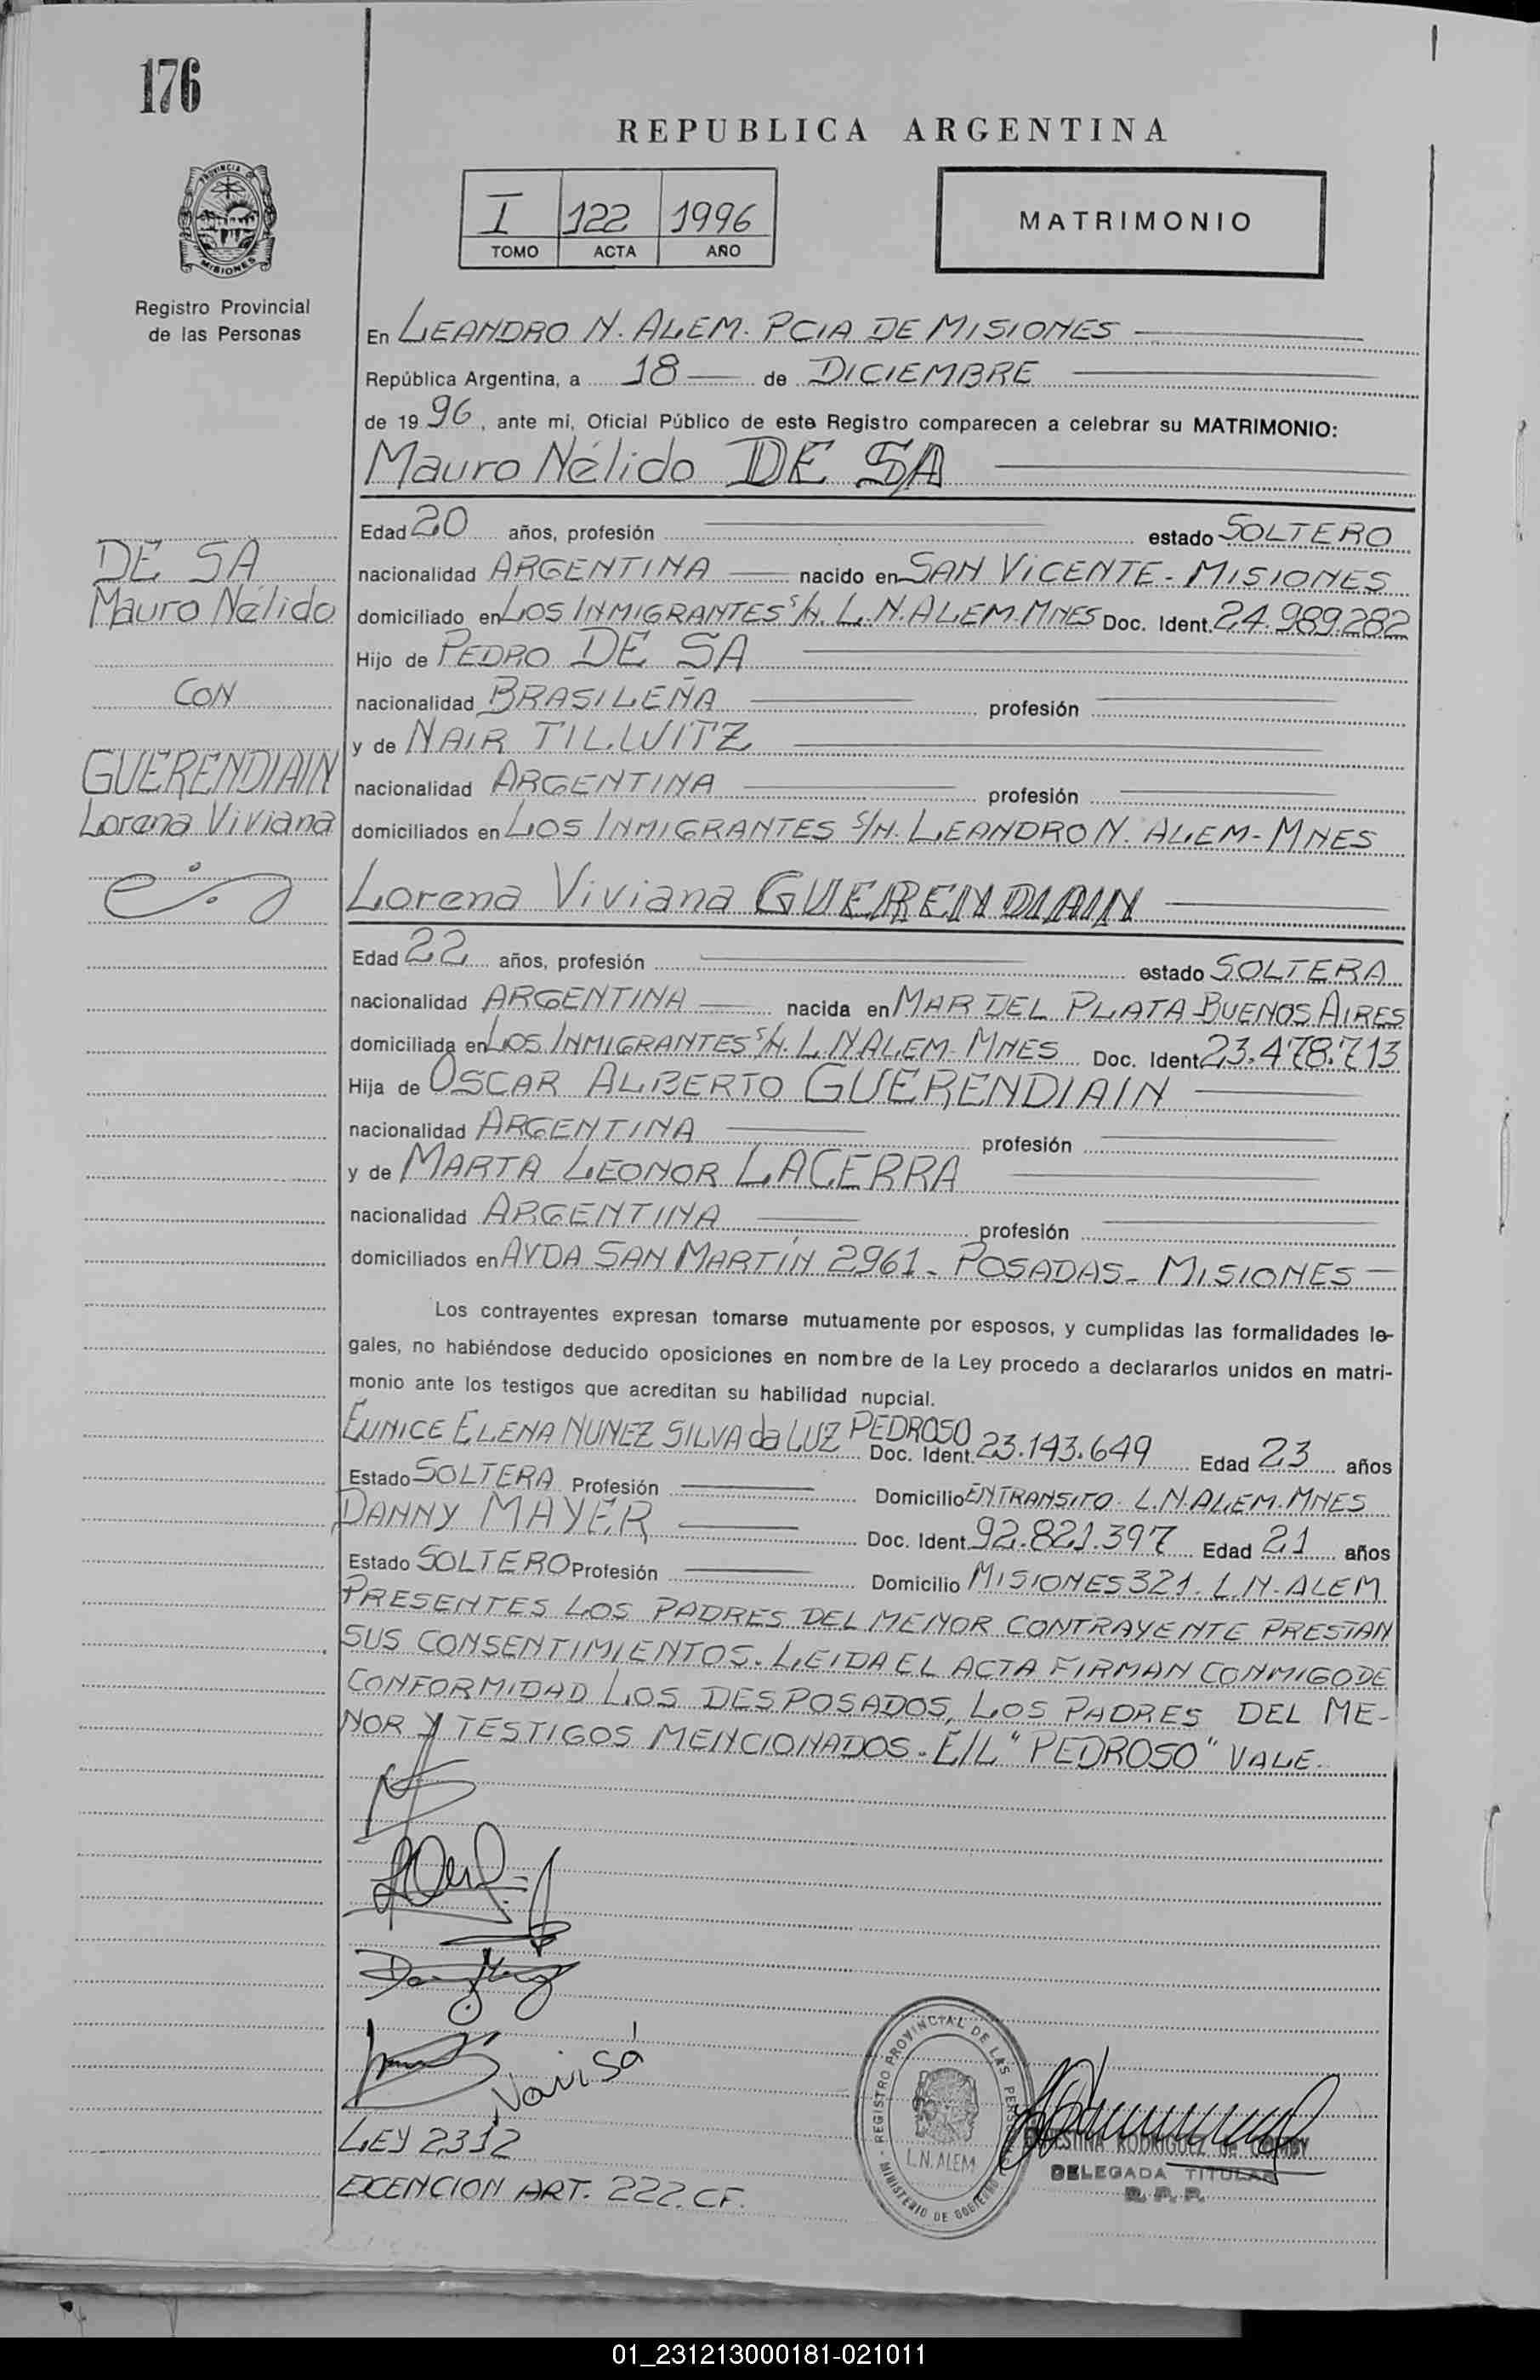 176
REPUBLICA ARGENTINA
PROVINCIA DE MISIONES
I 122 1996
TOMO ACTA AÑO
MATRIMONIO
Registro Provincial
de las Personas
En LEANDRO N. ALEM. PCIA DE MISIONES
República Argentina, a 18 de DICIEMBRE
de 1996, ante mi, Oficial Público de este Registro comparecen a celebrar su MATRIMONIO:
Mauro Nélido DE SA
DE SA
Mauro Nélido
CON
GUERENDIAIN
Lorena Viviana
Edad 20 años, profesión estado SOLTERO
nacionalidad ARGENTINA nacido en SAN VICENTE - MISIONES
domiciliado en LOS INMIGRANTES S/N. L.N. ALEM. MNES Doc. Ident. 24.989.282
Hijo de PEDRO DE SA
nacionalidad BRASILEÑA profesión
y de NAIR TILLWITZ
nacionalidad ARGENTINA profesión
domiciliados en LOS INMIGRANTES S/N. LEANDRO N. ALEM - MNES
Lorena Viviana GUERENDIAIN
Edad 22 años, profesión estado SOLTERA
nacionalidad ARGENTINA nacida en MAR DEL PLATA BUENOS AIRES
domiciliada en LOS INMIGRANTES S/N. L.N ALEM - MNES Doc. Ident. 23.478.713
Hija de OSCAR ALBERTO GUERENDIAIN
nacionalidad ARGENTINA profesión
y de MARTA LEONOR LACERRA
nacionalidad ARGENTINA profesión
domiciliados en AVDA SAN MARTÍN 2961 - POSADAS - MISIONES -
Los contrayentes expresan tomarse mutuamente por esposos, y cumplidas las formalidades le-
gales, no habiéndose deducido oposiciones en nombre de la Ley procedo a declararlos unidos en matri-
monio ante los testigos que acreditan su habilidad nupcial.
EUNICE ELENA NUNEZ SILVA da LUZ PEDROSO Doc. Ident. 23.143.649 Edad 23 años
Estado SOLTERA Profesión Domicilio EN TRANSITO. L.N. ALEM. MNES
DANNY MAYER Doc. Ident. 92.821.397 Edad 21 años
Estado SOLTERO Profesión Domicilio MISIONES 321. L.N. ALEM
PRESENTES LOS PADRES DEL MENOR CONTRAYENTE PRESTAN
SUS CONSENTIMIENTOS. LEIDA EL ACTA FIRMAN CONMIGO DE
CONFORMIDAD LOS DESPOSADOS, LOS PADRES DEL ME-
NOR Y TESTIGOS MENCIONADOS. E/L "PEDROSO" VALE.
LEY 2312
EXCENCION ART. 222. CF.
REGISTRO PROVINCIAL DE LAS
L.N. ALEM
MINISTERIO DE GOBIERNO
RODRIGUEZ
DELEGADA TITULAR
R. P. P.
01_231213000181-021011